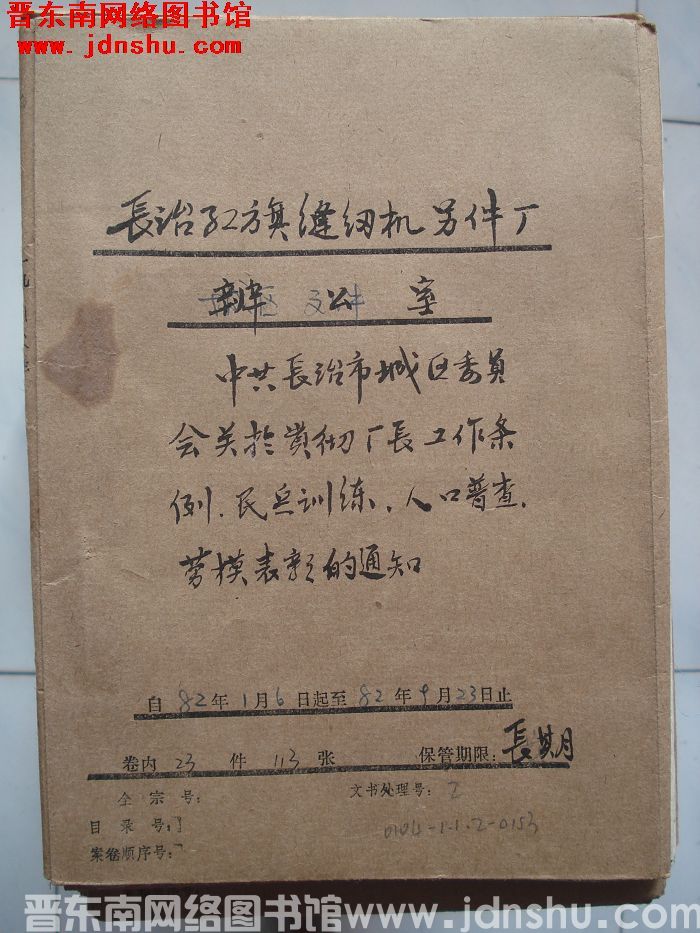 晋东南网络图书馆
www.jdnshu.com
長治红旗缝纫机另件厂
办公室
中共長治市城区委員
会关於贯彻厂長工作条
例．民兵训练．人口普查．
劳模表彰的通知
自82年1月6日起至82年9月23日止
卷内23件113张 保管期限：長期
全宗号： 文书处理号：
目录号：
案卷顺序号：
0104-1.1.2-0153
晋东南网络图书馆 www.jdnshu.com